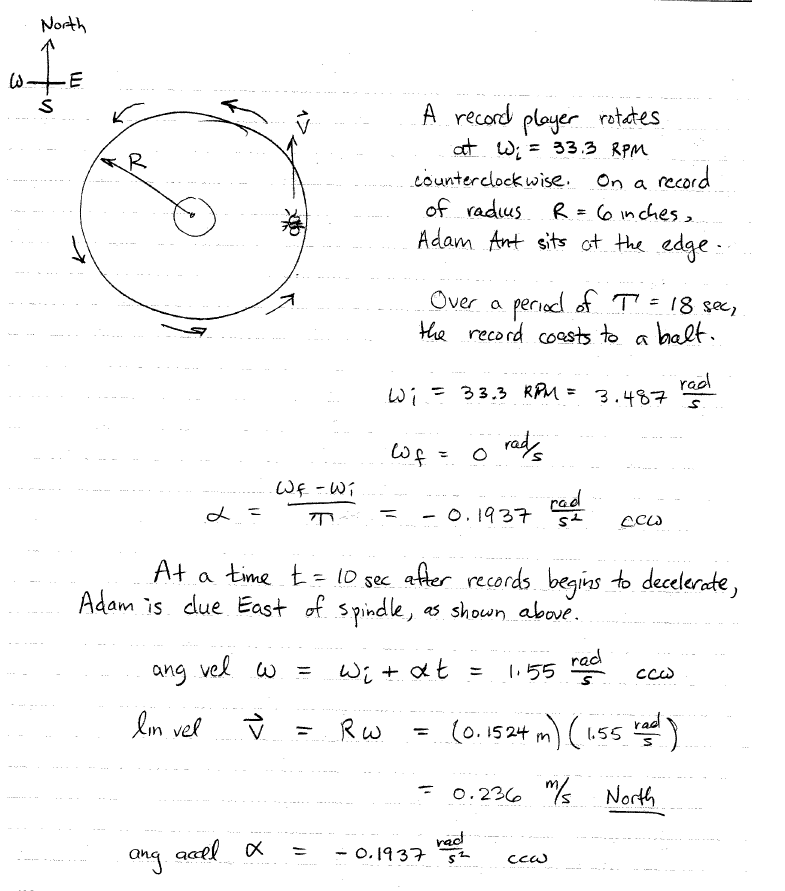 North
W E
S
R
v⃗
A record player rotates
at ωi = 33.3 RPM
counterclockwise. On a record
of radius R = 6 inches,
Adam Ant sits at the edge.
Over a period of T = 18 sec,
the record coasts to a halt.
ωi = 33.3 RPM = 3.487 rad/s
ωf = 0 rad/s
α = (ωf - ωi)/T = - 0.1937 rad/s² ccw
At a time t = 10 sec after records begins to decelerate,
Adam is due East of spindle, as shown above.
ang vel ω = ωi + αt = 1.55 rad/s ccw
lin vel v⃗ = Rω = (0.1524 m)(1.55 rad/s)
= 0.236 m/s North
ang accel α = - 0.1937 rad/s² ccw